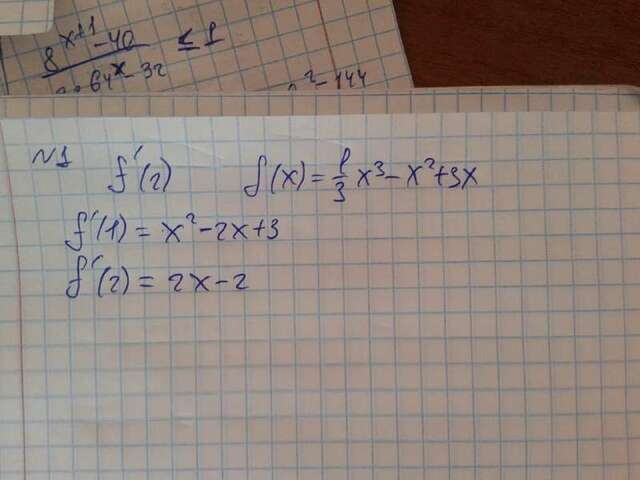 8^(x+1) - 40
≤ 1
64^x - 32
2 - 144
N1 f'(2) f(x) = 1/3 x³ - x² + 3x
f'(1) = x² - 2x + 3
f'(2) = 2x - 2